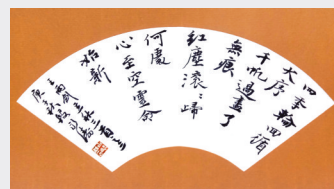 四季輪回循
大序
千帆過盡了
無痕
紅塵滾々歸
何處
心至空靈命
始新